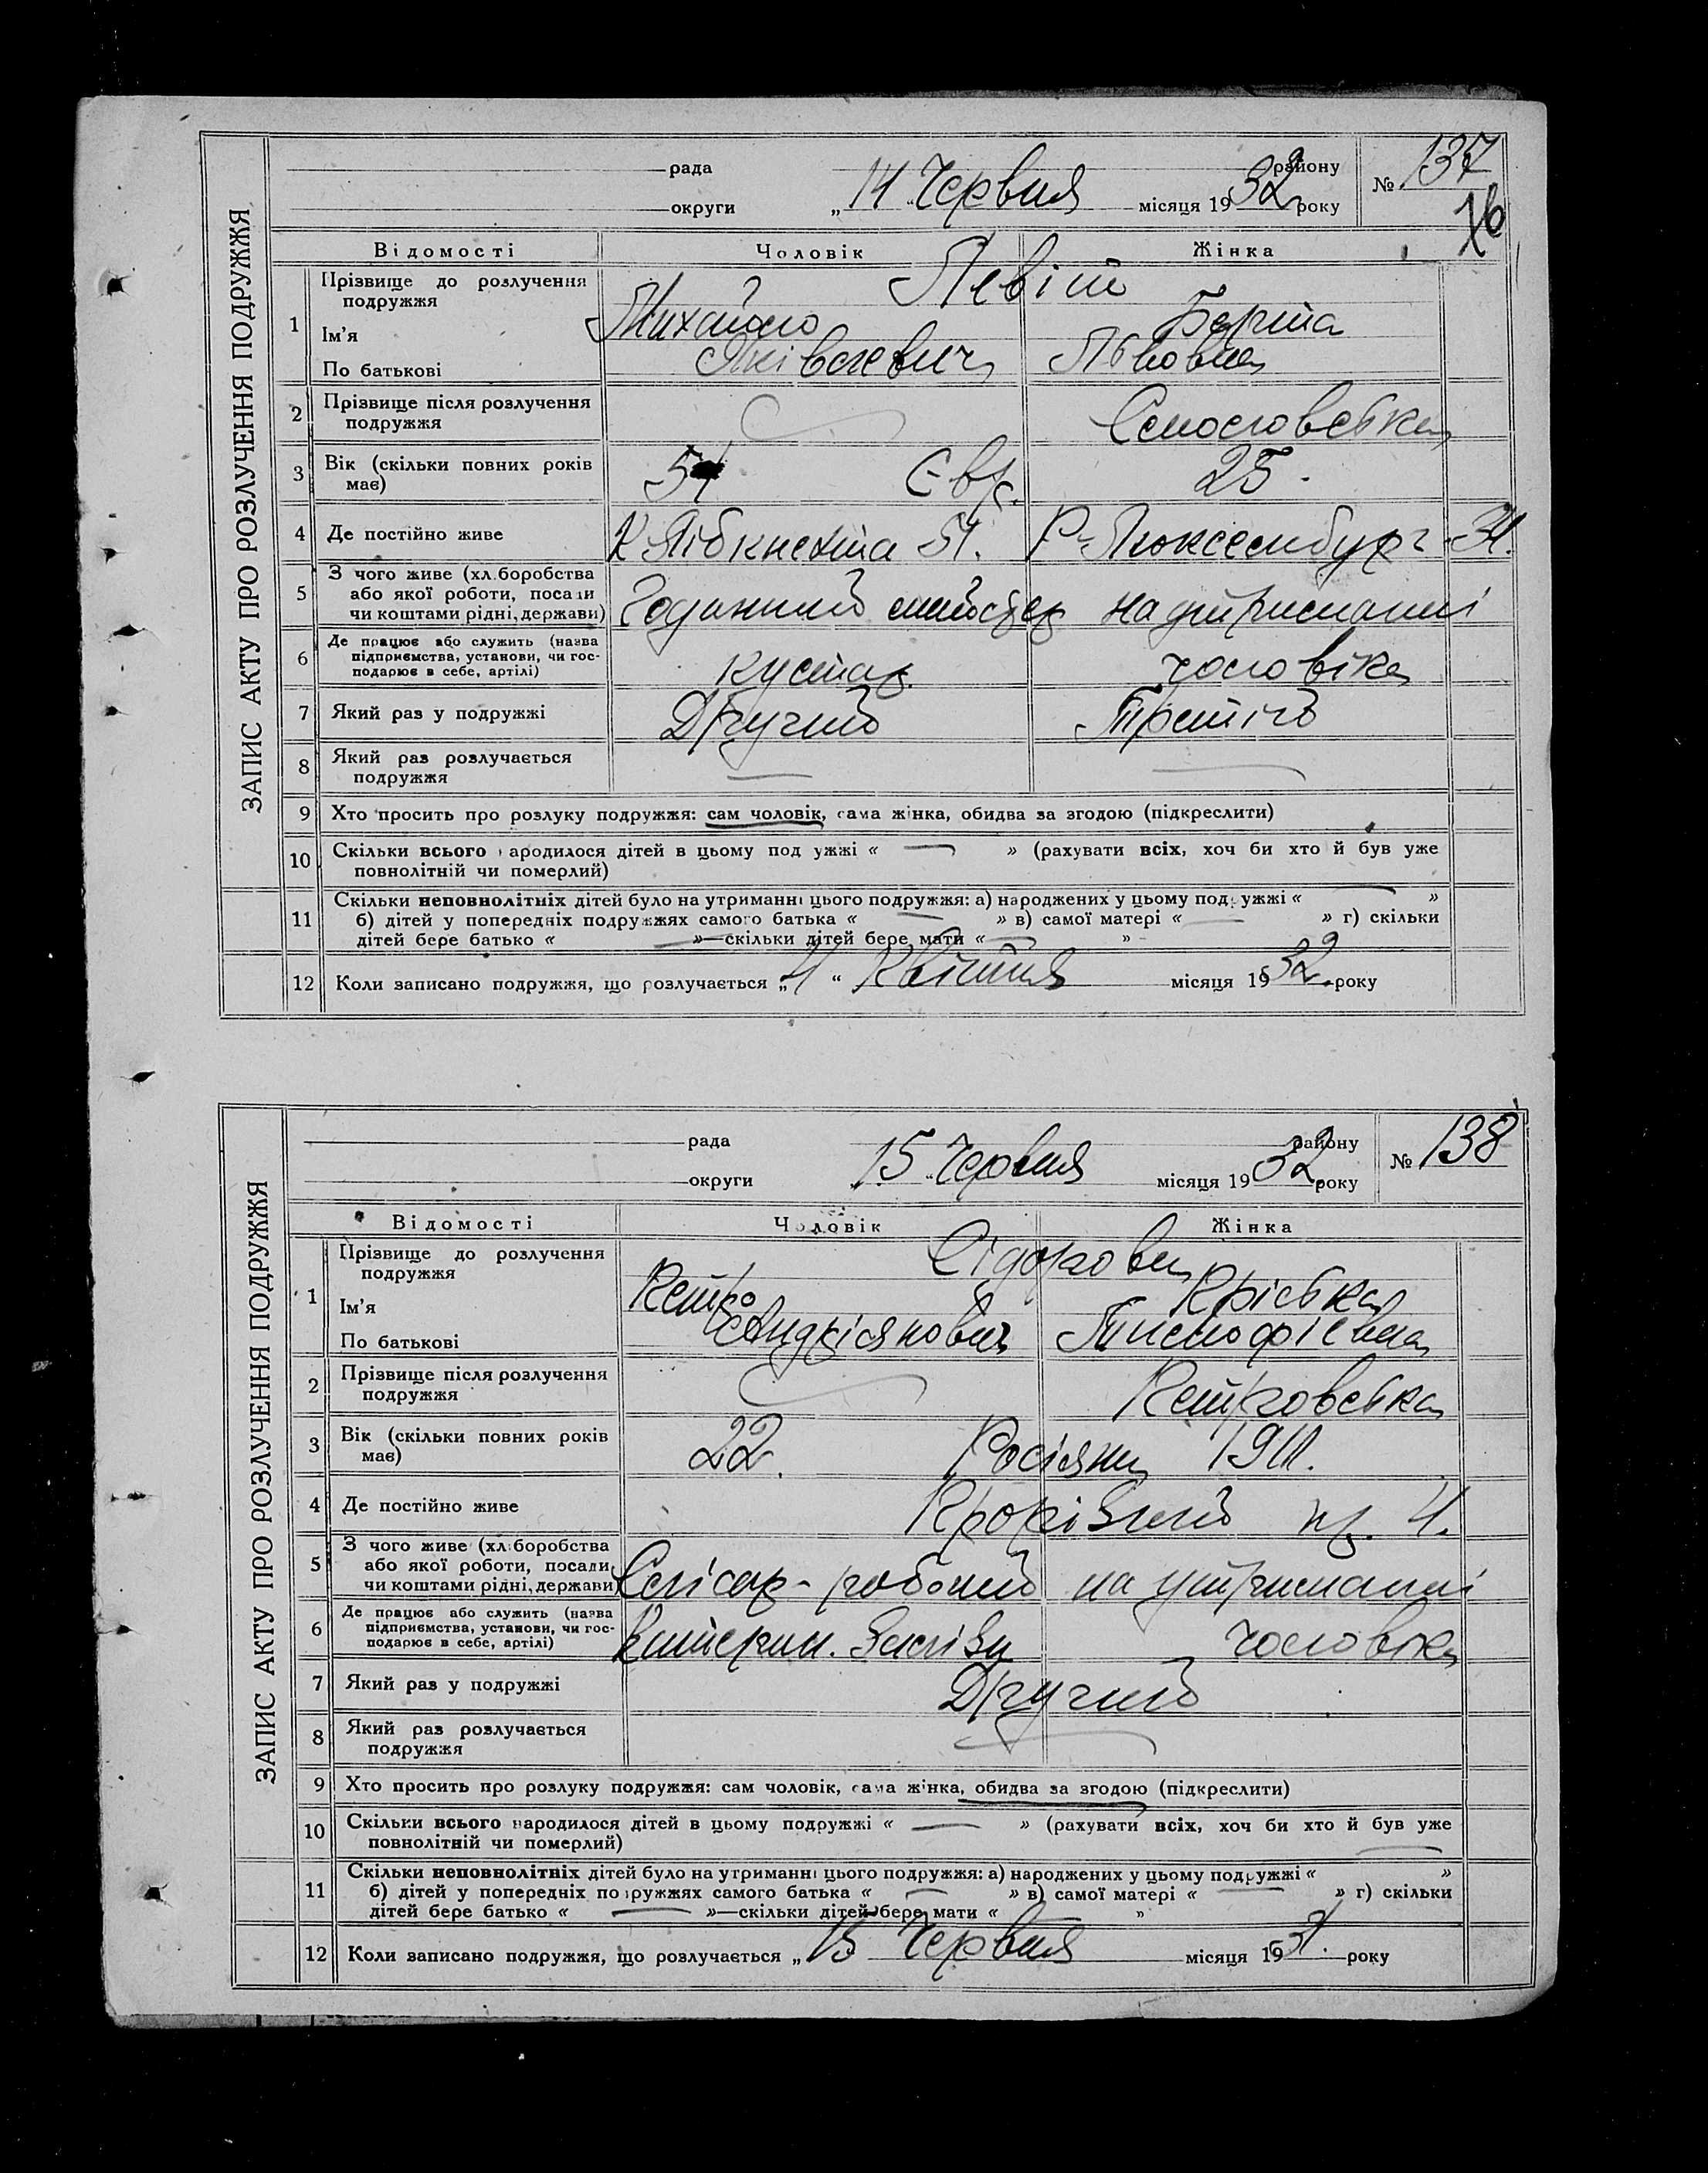 ЗАПИС АКТУ ПРО РОЗЛУЧЕННЯ ПОДРУЖЖЯ
рада району № 137
округи „14 “ Червня місяця 1932 року
76
Відомості Чоловік Жінка
1 Прізвище до розлучення подружжя Левіт
Ім’я Михайло Берта
По батькові Яківлевич Львовна
2 Прізвище після розлучення
подружжя
3 Вік (скільки повних років Євр. 25.
має)
4 Де постійно живе К Лібкнехта 51. Р-Люксембург - 31.
5 З чого живе (хл.боробства
або якої роботи, посади
чи коштами рідні, держави) Годинний майстер на утриманні
6 Де працює або служить (назва
підприємства, установи, чи гос-
подарює в себе, артілі) кустар. чоловіка
7 Який раз у подружжі Другий Третій
8 Який раз розлучається
подружжя
9 Хто просить про розлуку подружжя: сам чоловік, сама жінка, обидва за згодою (підкреслити)
10 Скільки всього народилося дітей в цьому подружжі « — » (рахувати всіх, хоч би хто й був уже
повнолітній чи померлий)
11 Скільки неповнолітніх дітей було на утриманні цього подружжя: а) народжених у цьому подружжі « — »
б) дітей у попередніх подружжях самого батька « — » в) самої матері « — » г) скільки
дітей бере батько « — »—скільки дітей бере мати « — »
12 Коли записано подружжя, що розлучається „4 “ Квітня місяця 1932 року
ЗАПИС АКТУ ПРО РОЗЛУЧЕННЯ ПОДРУЖЖЯ
рада району № 138
округи „15 “ Червня місяця 1932 року
Відомості Чоловік Жінка
1 Прізвище до розлучення
подружжя Сідорови
Ім’я Петро
По батькові Андріянович Тимофієвна
2 Прізвище після розлучення
подружжя Петровська
3 Вік (скільки повних років 22. Росіяни 1911.
має)
4 Де постійно живе Прорізний пр. 4.
5 З чого живе (хл.боробства
або якої роботи, посади,
чи коштами рідні, держави) Слісар - робочий на утриманні
6 Де працює або служить (назва
підприємства, установи, чи гос-
подарює в себе, артілі) чоловіка
7 Який раз у подружжі Другий
8 Який раз розлучається
подружжя
9 Хто просить про розлуку подружжя: сам чоловік, сама жінка, обидва за згодою (підкреслити)
10 Скільки всього народилося дітей в цьому подружжі « — » (рахувати всіх, хоч би хто й був уже
повнолітній чи померлий)
11 Скільки неповнолітніх дітей було на утриманні цього подружжя: а) народжених у цьому подружжі « — »
б) дітей у попередніх подружжях самого батька « — » в) самої матері « — » г) скільки
дітей бере батько « — »—скільки дітей бере мати « »
12 Коли записано подружжя, що розлучається „15 Червня місяця 1931. року